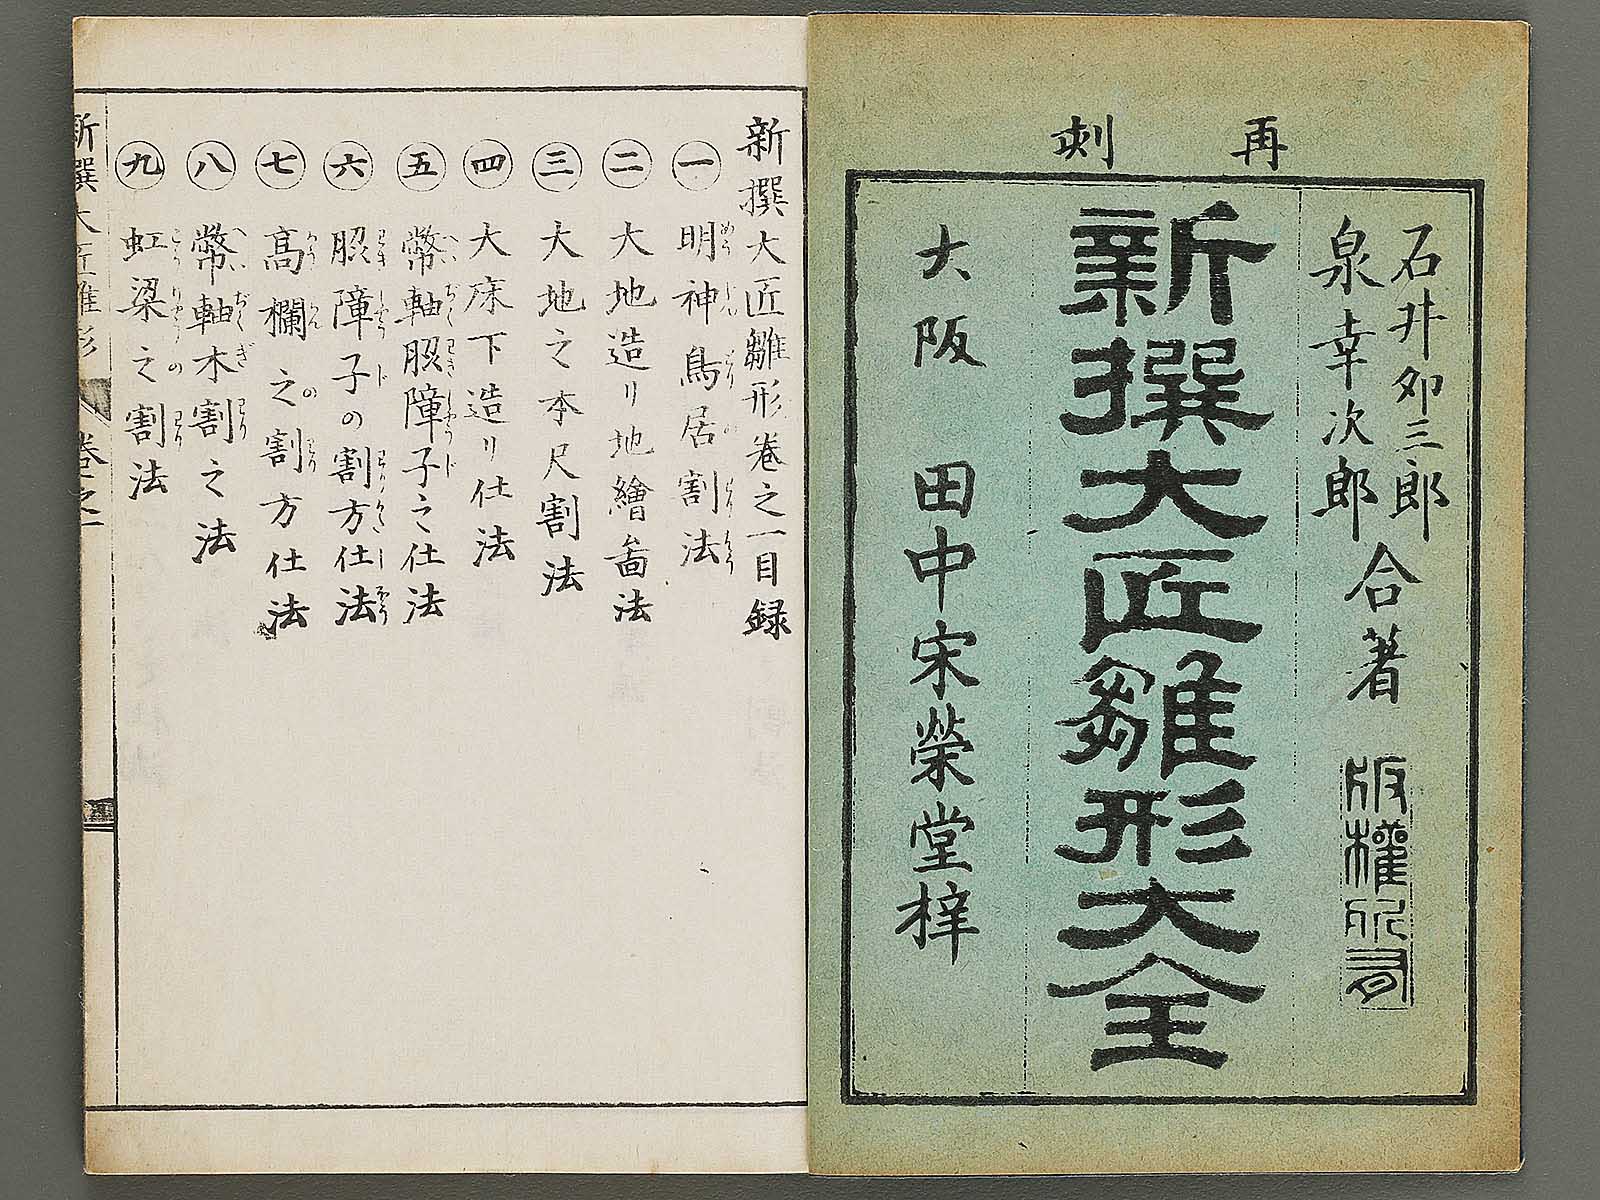 再刻
石井卯三郎
泉幸次郎
合著
版權所有
新撰大匠雛形大全
大阪 田中宋榮堂梓
新撰大匠雛形巻之一目録
一 明神鳥居割法
二 大地造リ地繪啚法
三 大地之本尺割法
四 大床下造リ仕法
五 幣軸脇障子之仕法
六 脇障子の割方仕法
七 髙欄之割方仕法
八 幣軸木割之法
九 虹梁之割法
新撰大匠雛形 巻之一